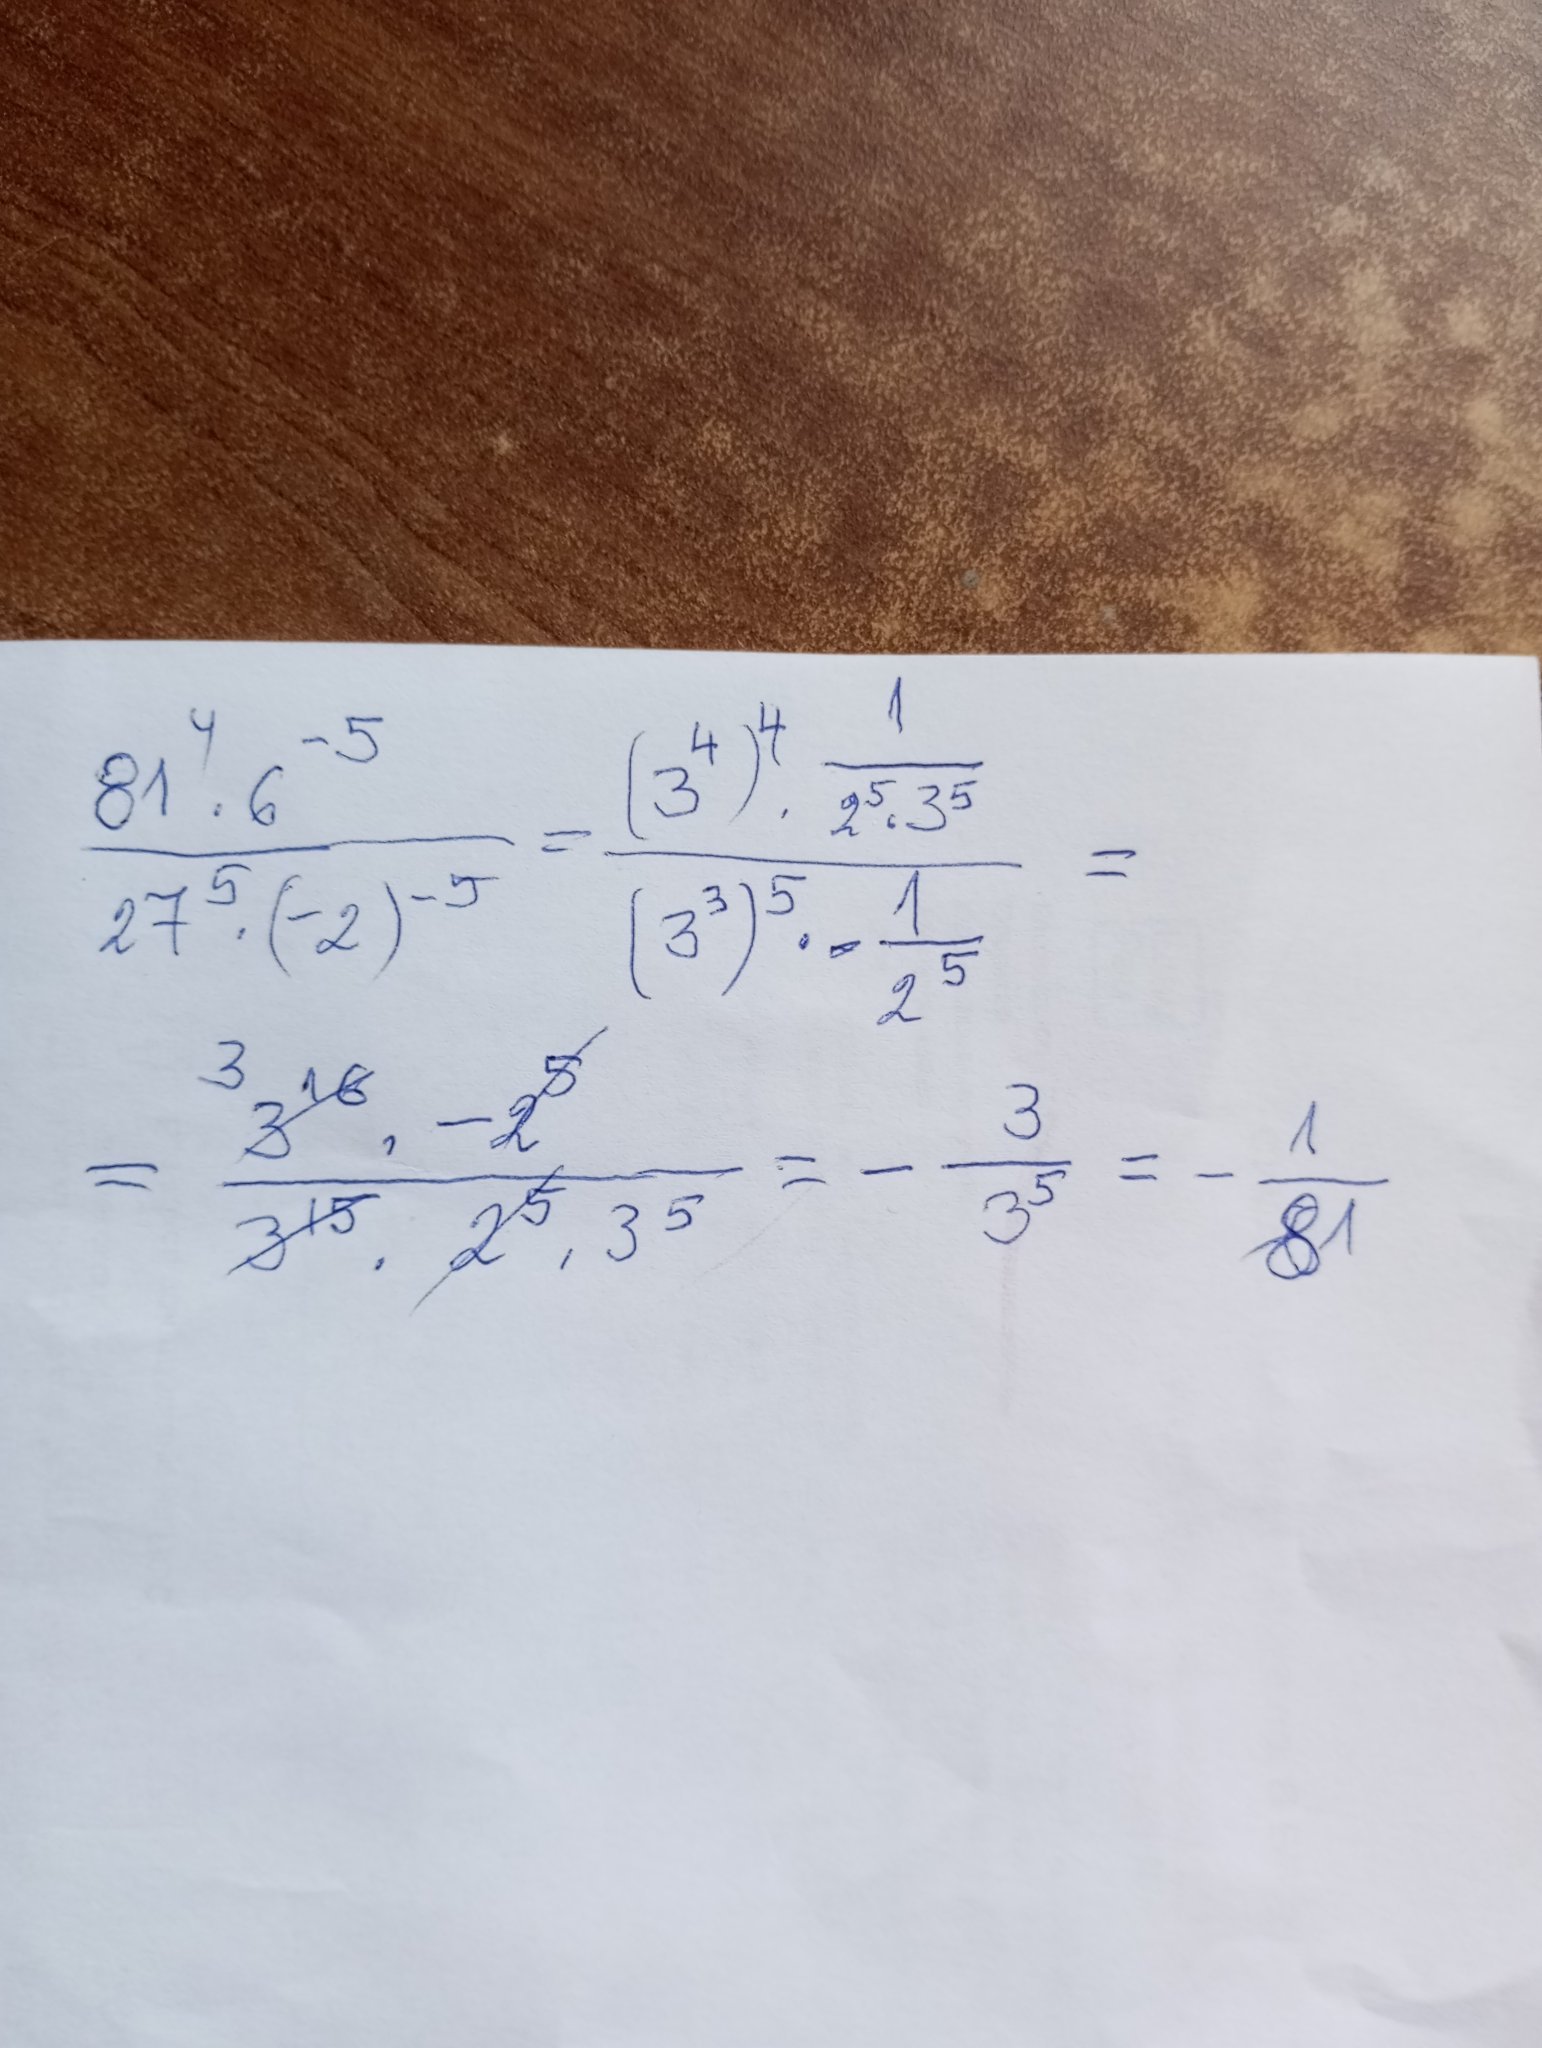 81⁴ · 6⁻⁵ / 27⁵ · (-2)⁻⁵ = (3⁴)⁴ · 1/(2⁵ · 3⁵) / (3³)⁵ · - 1/2⁵ =
= 3 3¹⁶ · -2⁵ / 3¹⁵ · 2⁵ · 3⁵ = - 3/3⁵ = - 1/81